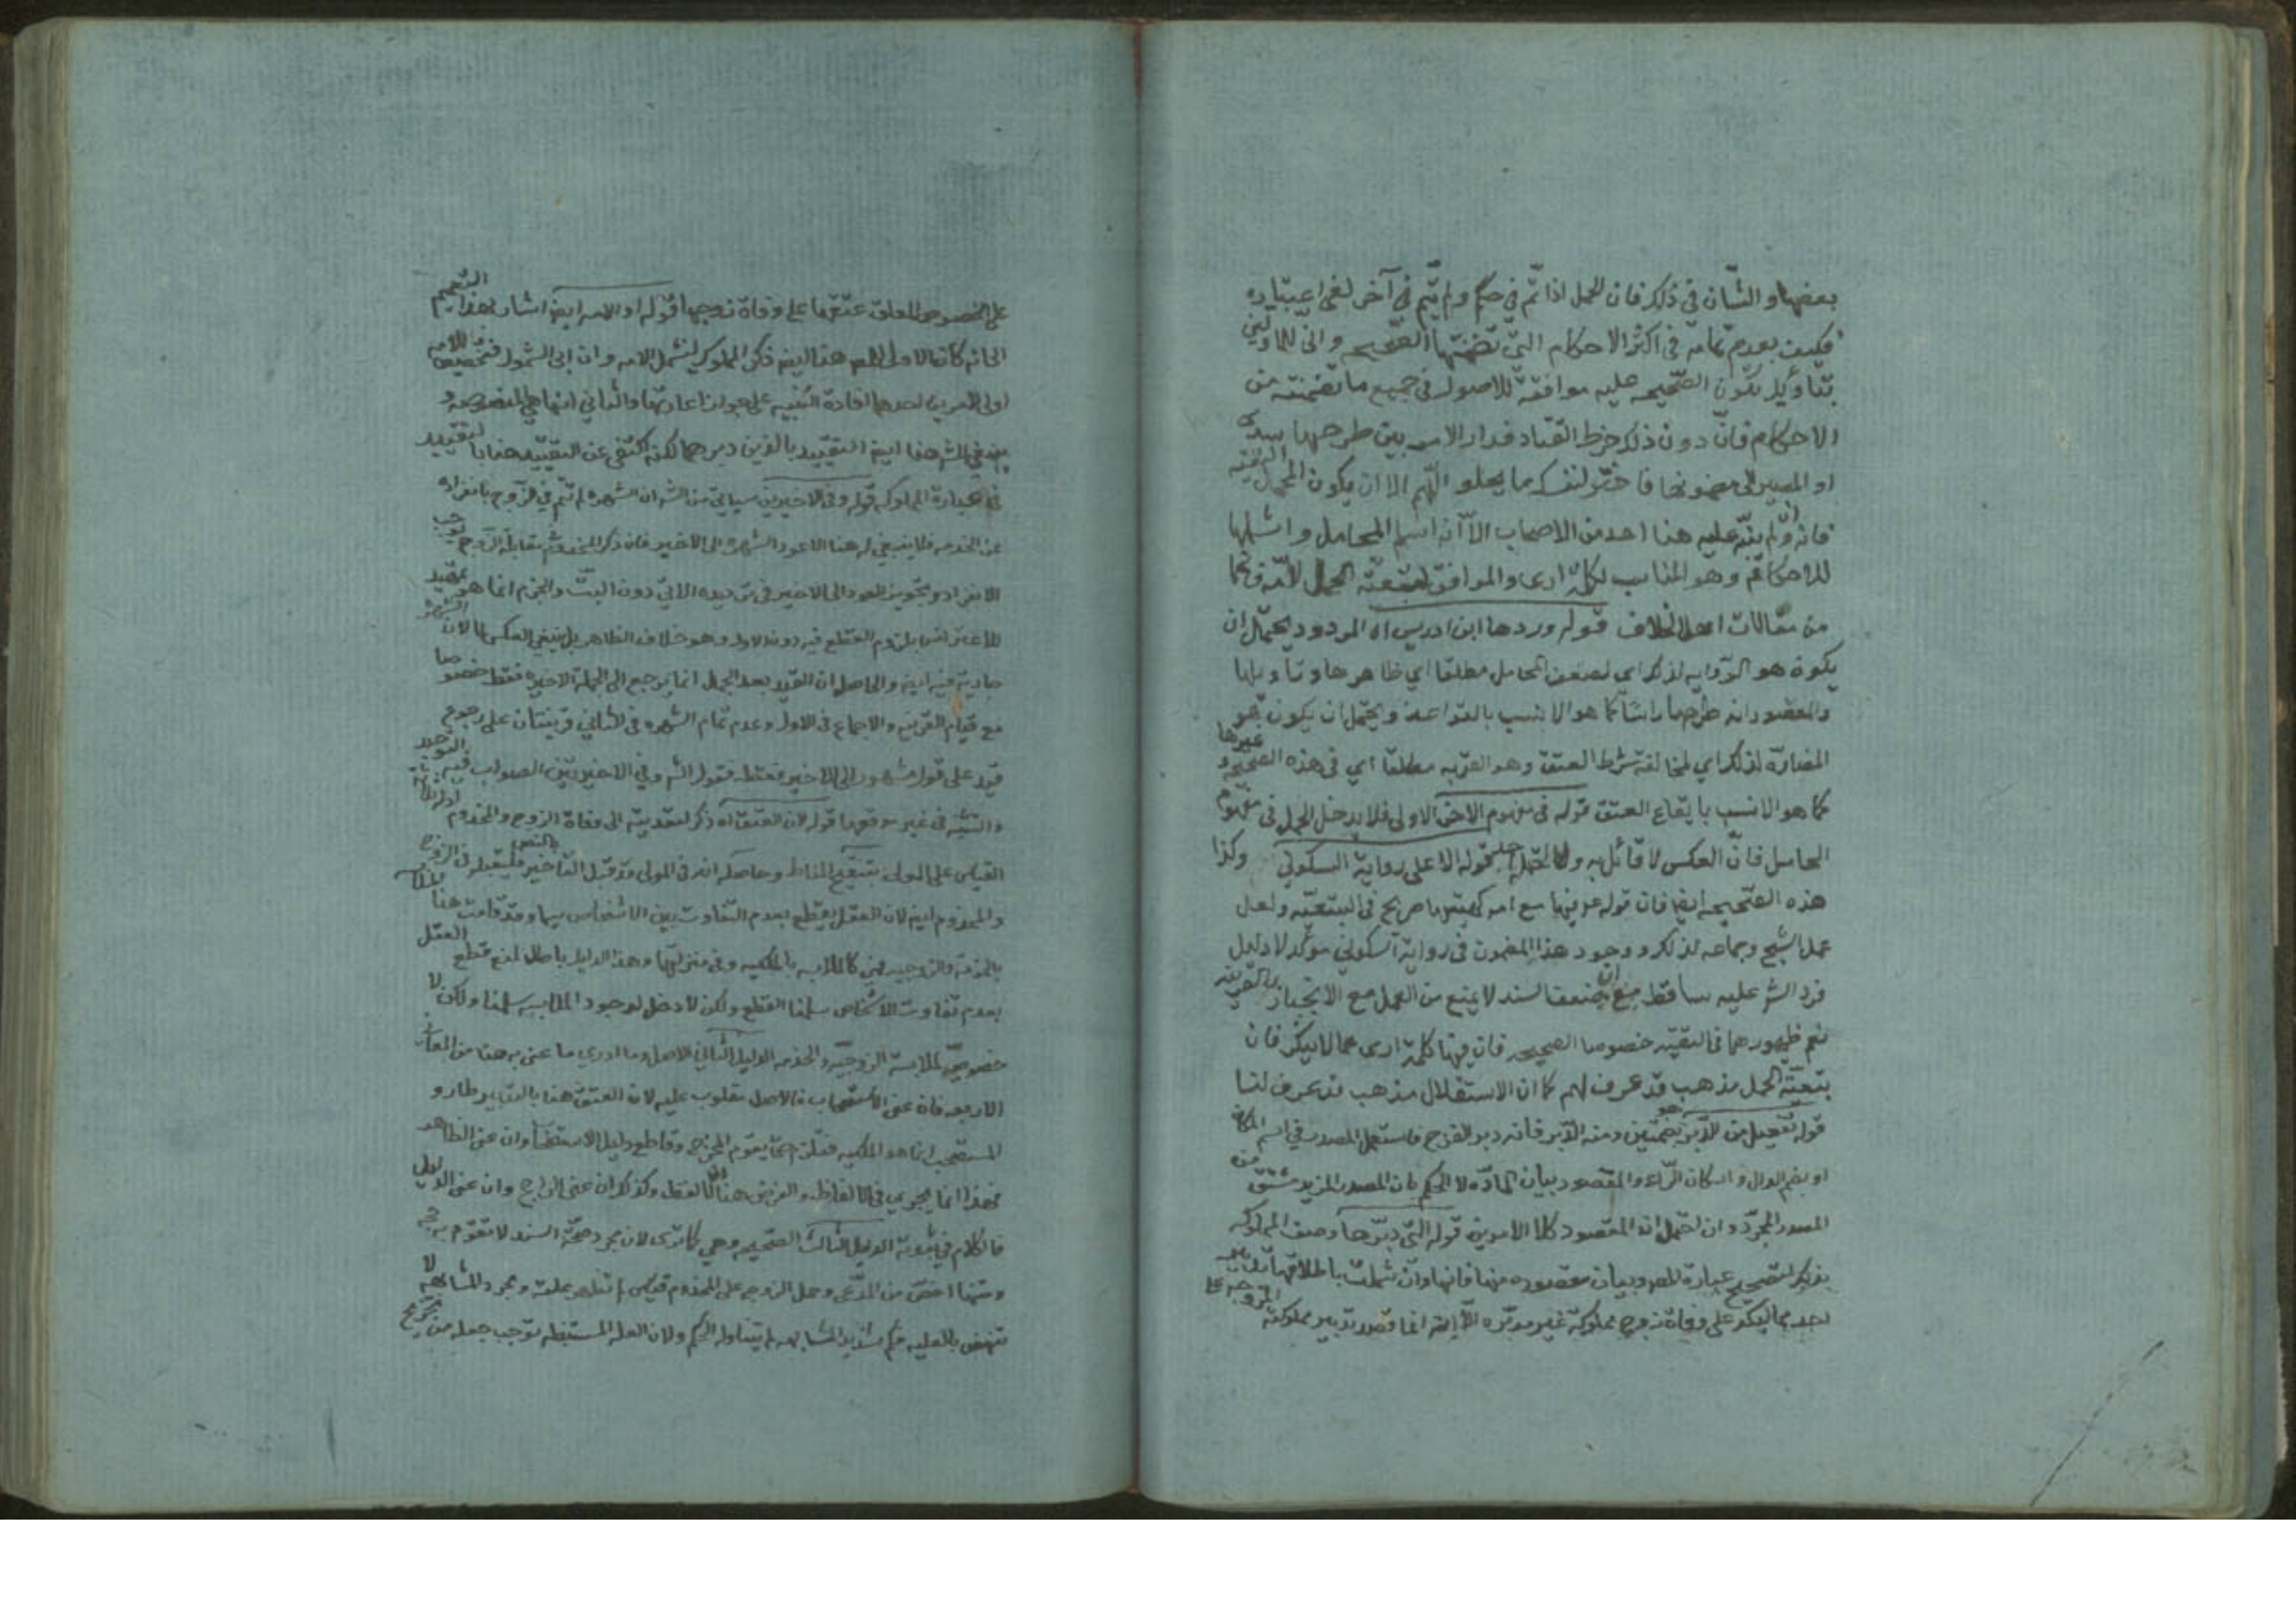 بعضها والشأن في ذلك فان الحمل اذا تم في حكم ولم يتم في آخر لغى اعتباره
فكيف بعدم تمامه في اكثر الاحكام التي تضمنتها الصحيحه وانى للماولين
بتأويل تكون الصحيحه عليه موافقة للاصول في جميع ما تضمنته من
الاحكام فان دون ذلك خرط القتاد فدار الامر بين طرحها
او المصير الى مضمونها فاختر لنفسك ما يحلو اللهم الا ان يكون المحمل التقيه
فانه وان لم ينبه عليه هنا احد من الاصحاب الا انه اسلم المحامل واشملها
للاحكام وهو المناسب لكلمة ارى والموافق لتبعية الحمل لامه فيها
من مقالات اهل الخلاف قوله وردها ابن ادريس اه المردود يحتمل ان
يكون هو الروايه لذلك اي لضعف المحامل مطلقا اي ظاهرها وتاويلها
والمقصود انه طرحها راسا كما هو الانسب بالقواعد ويحتمل ان يكون هو
لذلك اي لمخالفة شرط العتق وهو القربه مطلقا اي في هذه الصحيحه وغيرها
كما هو الانسب بايقاع العتق قوله في مفهوم الاخر الاولى فلا يدخل الحمل في مفهوم
الحامل فان العكس لا قائل به قوله الا على رواية السكوني وكذا
هذه الصحيحه ايضا فان قوله صريح في التبعيه ولعل
عمل الشيخ وجماعه لذلك ووجود هذا المضمون في رواية السكوني مؤكد لا دليل
فرد الشر عليه ساقط مع ان ضعف السند لا يمنع من العمل مع الانجبار بالقرينه
نعم ظهورهما في التقيه خصوصا الصحيحه فان فيها كلمة ارى مما لا ينكر فان
بتبعية الحمل مذهب قد عرف لهم كما ان الاستقلال مذهب قد عرف لنا
قوله تفعيل من الدبر بضمتين ومنه الدبر فانه دبر الفرج فاستعمل المصدر في اسم المكان
او بضم الدال واسكان الراء والمقصود بيان المادة لا الحكم بان المصدر المزيد مشتق من
المصدر المجرد وان احتمل ان المقصود كلا الامرين قوله التي دبرها وصف المملوكه
بذلك لتصحيح عبارة المص وبيان مقصوده منها فانها وان شملت باطلاقها
على وفاة زوج مملوكة غير مدبره الا انه انما قصد تدبير مملوكته
على الخصوص المعلق عتقها على وفاة زوجها قوله او الامه ايضا اشار بهذا التعميم
الى انه كان الاولى للمص هنا ايضا ذكر المملوك ليشمل الامه وان ابى الشمول فتخصيصها للامه
اولى لامرين احدهما افادة التنبيه على جواز اعادتها والثاني انها هي المنصوصه و
ينبغي للشر هنا ايضا التقييد بالذين دبرهما لكنه اكتفى عن التقييد هنا بالتقييد
في عبارة المملوكه قوله وفي الاخيرين سياتي من الشر ان الشهره لم تتم في الزوج بانفراده
عن الخدمه فلا ينبغي له هنا الا عود الشهره الى الاخير فان ذكر المخدوم مقابلة الزوج يوجب
الانفراد وتجويز العود الى الاخير في ترديده الاتي دون البت والجزم انما هو تمهيد
للاعتراض بلزوم القطع فيه دون الاول وهو خلاف الظاهر بل ينبغي العكس لان الشهره
جاريه فيه ايضا والحاصل ان القيد بعد الجمل انما يرجع الى الجملة الاخيره فقط خصوصا
مع قيام القرينه والاجماع في الاول وعدم تمام الشهره في الثاني قرينتان على رجوع
قيد على قول مشهور الى الاخير فقط فقول الشر وفي الاخيرين الصواب فيه التوحيد
والتثنيه في غير موقعها قوله لان العتق اه ذكر لتعديته الى وفاة الزوج والمخدوم
القياس على المولى بتنقيح المناط وحاصله انه في المولى قد قبل التاخير بالنص فليقبله في الزوج
والمخدوم ايضا لان العقل يقطع بعدم التفاوت بين الاشخاص سيما وقد قامت هنا
بالخدمه والزوجيه فهي كالملابسه بالملكيه وفي منزلتها وهذا الدليل باطل لمنع قطع العقل
بعدم تفاوت الاشخاص سلمنا القطع ولكن لا دخل لوجود الملابسه سلمنا ولكن لا
خصوصية لملابسة الزوجيه والخدمه الدليل الثاني الاصل وما ادري ما عنى به هنا من المعاني
الاربعه فان عنى الاستصحاب فالاصل مقلوب عليه لان العتق هنا بالتدبير طار و
المستصحب انما هو الملكيه وقاطع دليل الاستصحاب وان عنى الظاهر
فهذا انما يجري في الالفاظ والفرض هنا ان لا لفظ وكذلك ان عنى الراجح وان عنى الدليل
فالكلام في ثبوته الدليل الثالث الصحيحه وهي كما ترى لان مجرد صحة السند لا تقوم به حجه
ومتنها اخص من المدعى وحمل الزوج على المخدوم قياس لم تظهر علته ومجرد المشابهه لا
تنهض بالعليه فكم شديد المشابهه لم يتناوله الحكم ولان العله المستنبطه توجب جعله من